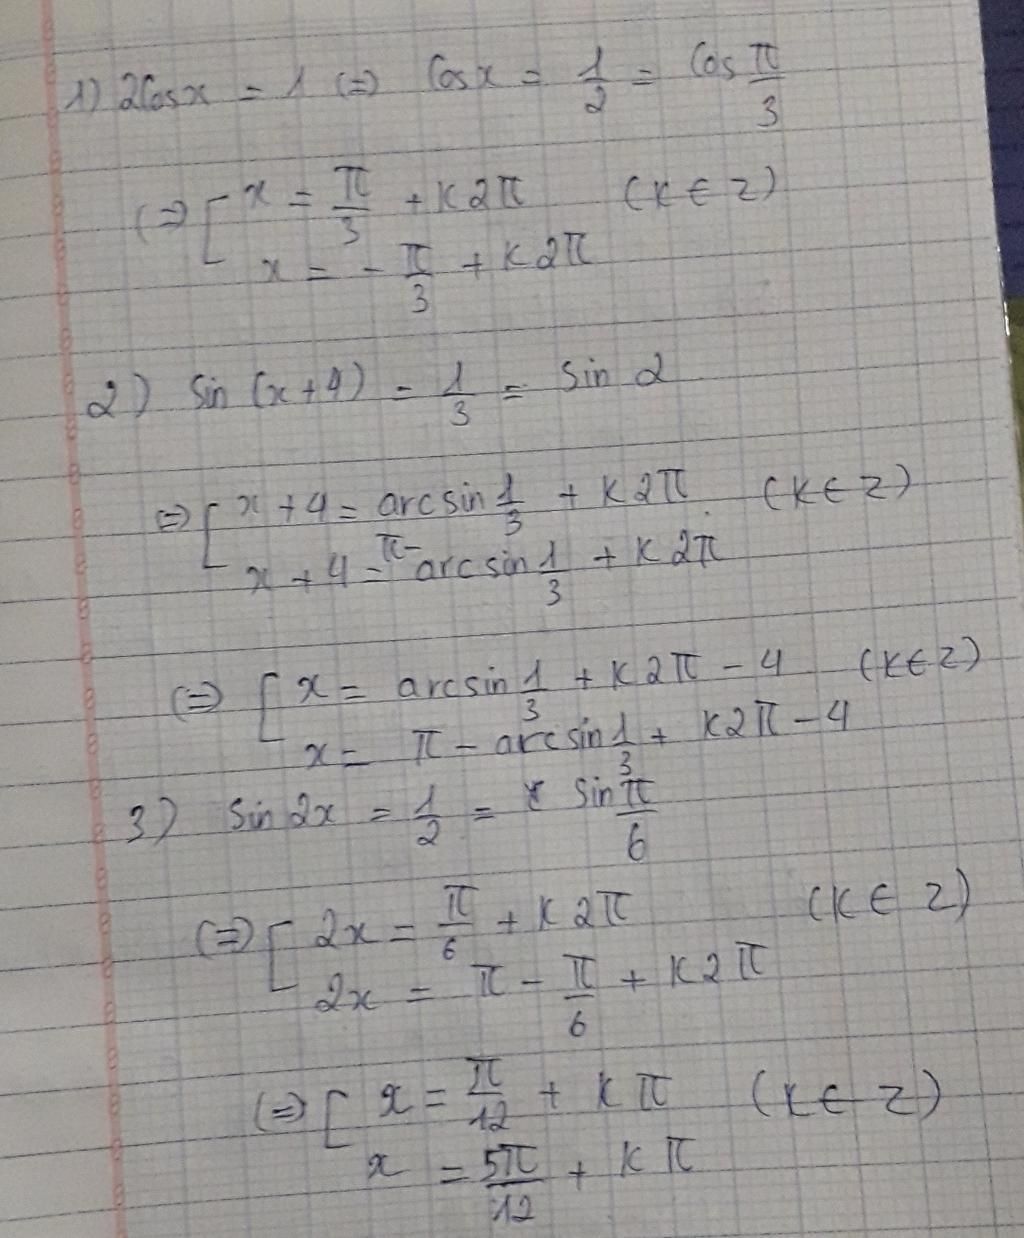 1) 2Cosx = 1 (=) Cosx = 1/2 = Cos π/3
(=) [ x = π/3 + K2π (K ∈ Z)
x = - π/3 + K2π
2) Sin (x+4) = 1/3 = Sin α
(=) [ x + 4 = arcsin 1/3 + K2π (K ∈ Z)
x + 4 = π - arcsin 1/3 + K2π
(=) [ x = arcsin 1/3 + K2π - 4 (K ∈ Z)
x = π - arcsin 1/3 + K2π - 4
3) Sin 2x = 1/2 = Sin π/6
(=) [ 2x = π/6 + K2π (K ∈ Z)
2x = π - π/6 + K2π
(=) [ x = π/12 + Kπ (K ∈ Z)
x = 5π/12 + Kπ